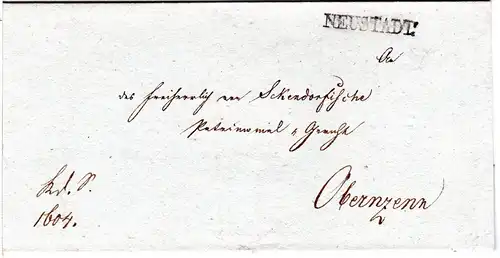 NEUSTADT.
An
das Freiherrlich von Sekendorfische
Patrimonial = Gericht
Obernzenn
Kd. S.
1604.